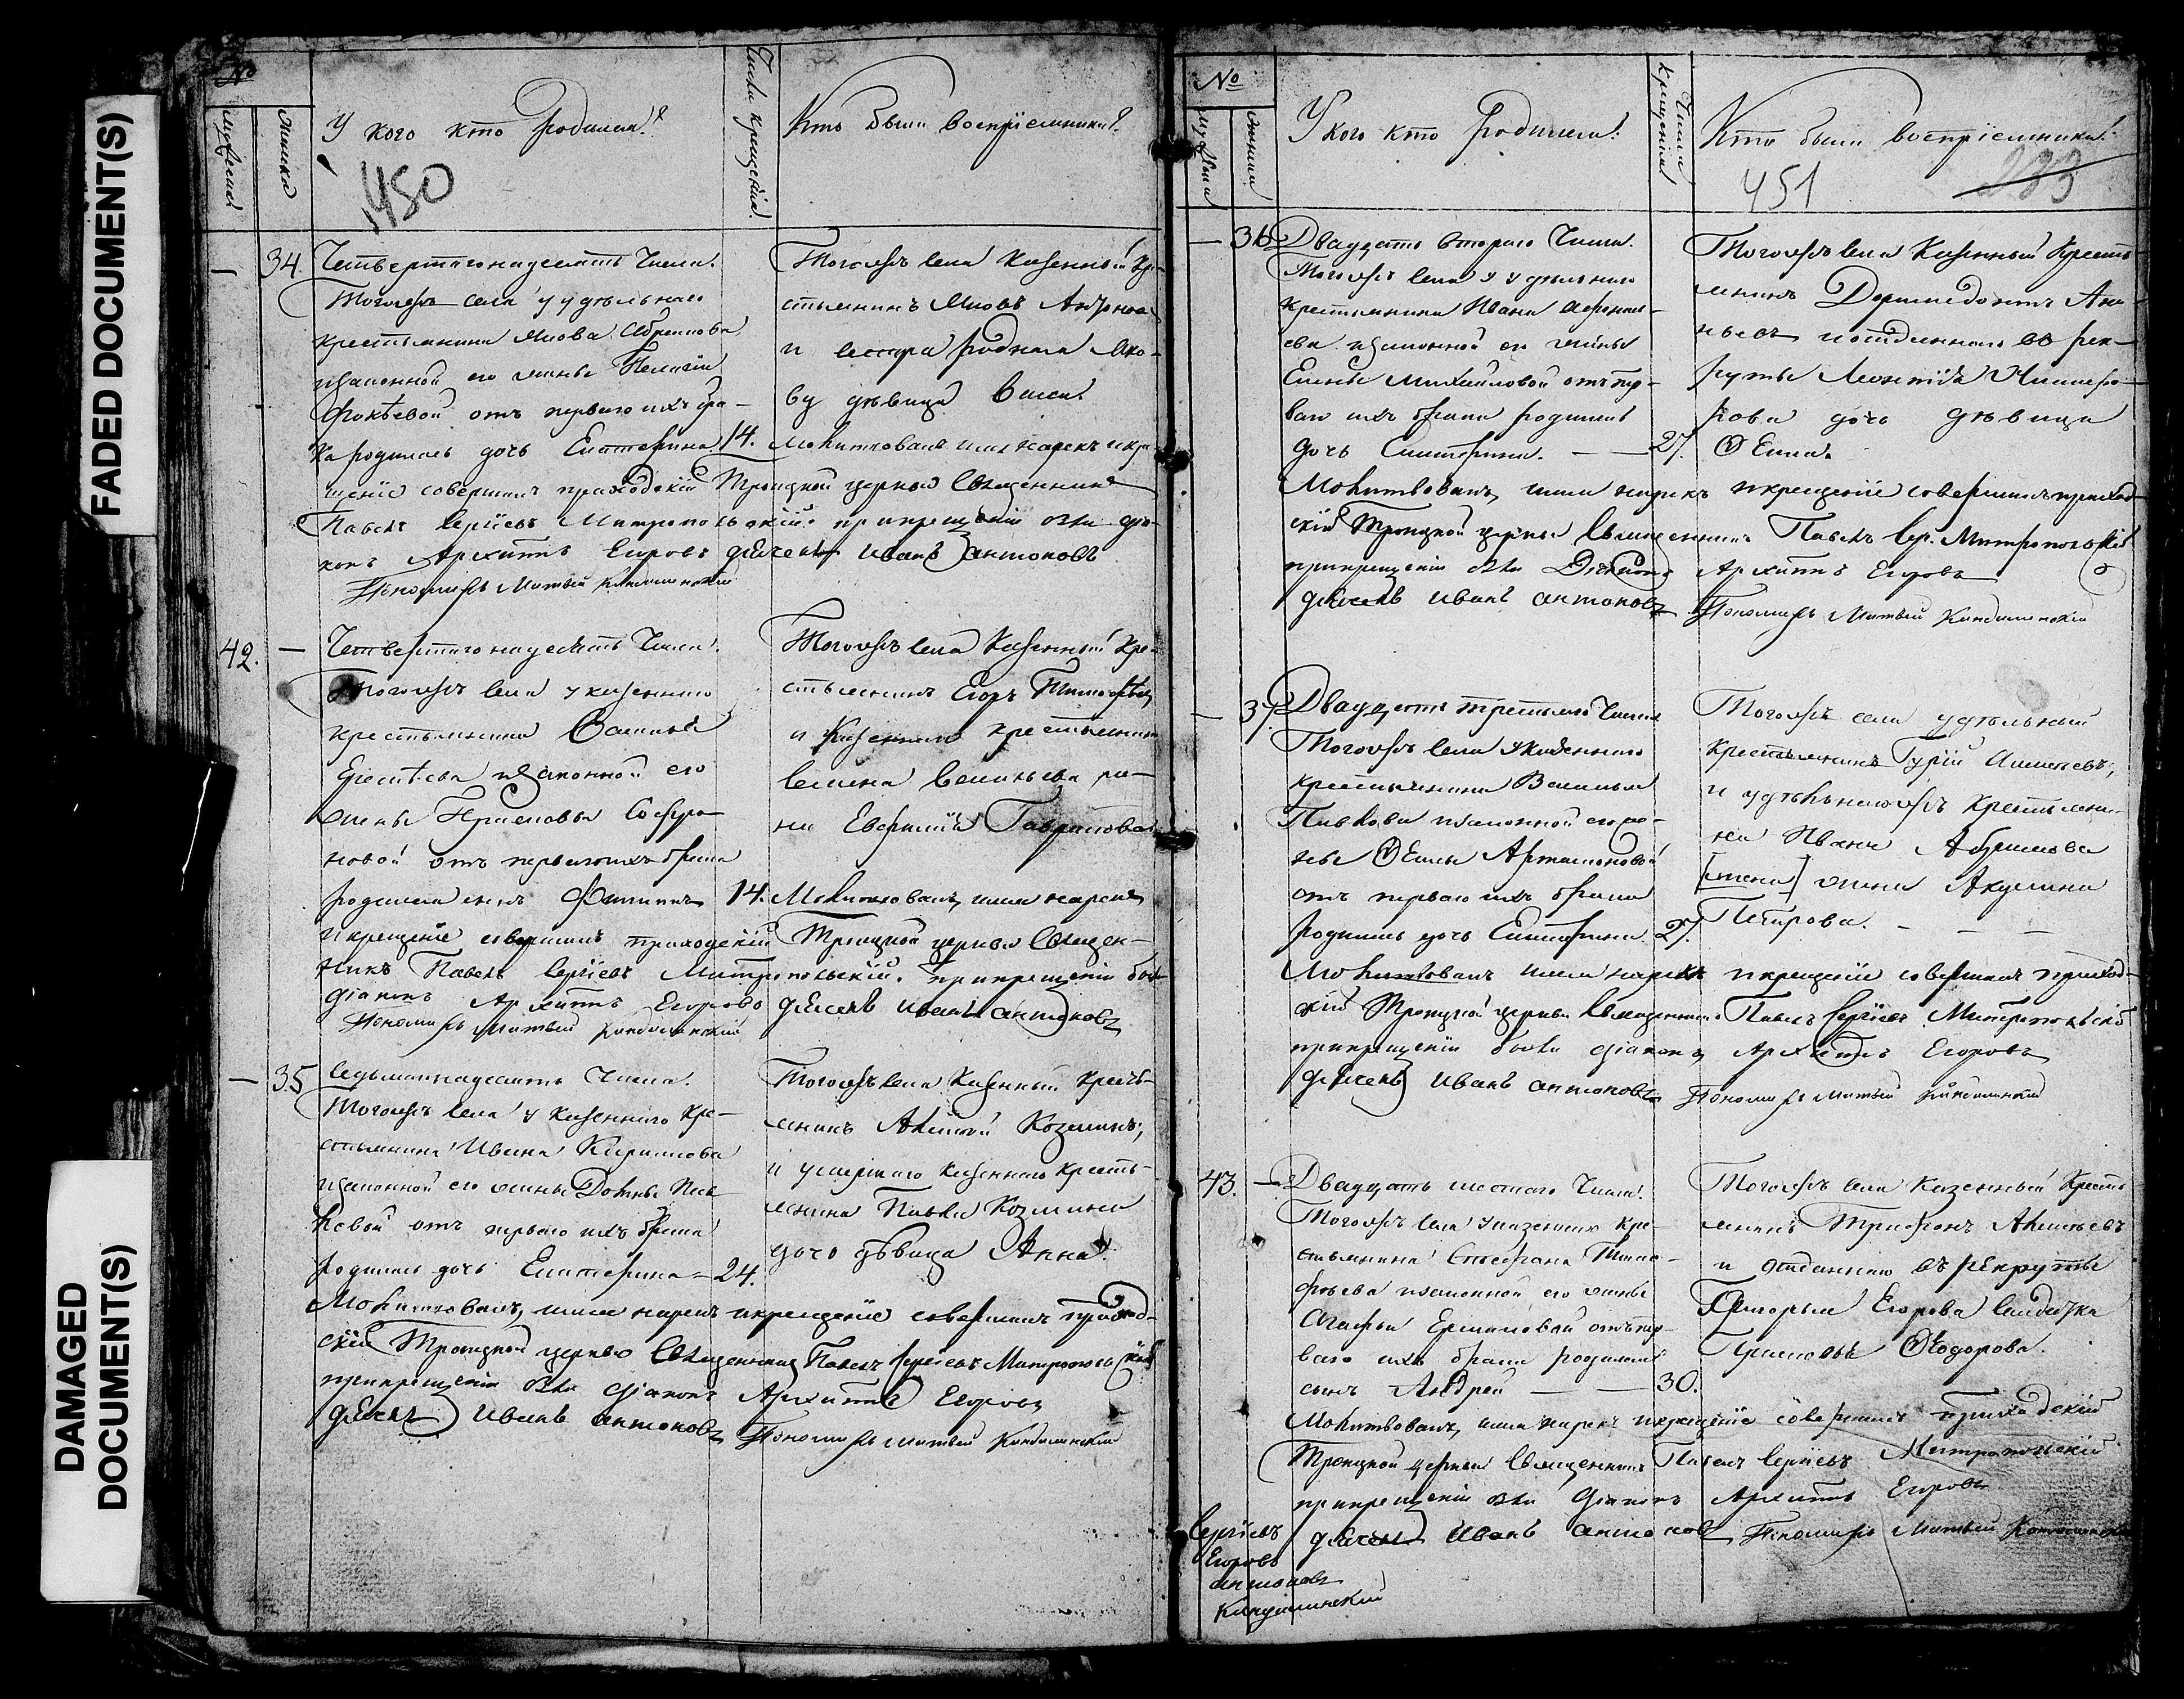 FADED DOCUMENT(S)
DAMAGED
DOCUMENT(S)
№
мужеска
женска
У кого кто родился?
Числа крещенія.
Кто были воспріемники?
450
34.
Четвертагонадесять Числа.
Тогожъ села у удѣльнаго
крестьянина Якова Абрамова
изаконной его жены Пелагіи
Фокѣевой отъ перваго ихъ бра-
ка родилась дочь Екатерина
14.
Тогожъ села Казенный Кре-
стьянинъ Яковъ
и сестра родная Яко-
ву дѣвица
Молитвовалъ имя нарекъ икре-
щеніе совершилъ приходскій Троицкой церкви Священникъ
Павелъ Сергіевъ Митропольскій. при крещеніи были дія-
конъ Архиппъ Егоровъ дѣячекъ иванъ антоновъ
Пономарь Матвѣй
42.
Четвертагонадесять Числа.
Тогожъ села у казеннаго
крестьянина Василья
изаконной его
жены Софро-
новой отъ перваго ихъ брака
родился сынъ Филиппъ
14.
Тогожъ села Казенный Кре-
стьянинъ Егоръ Тимофѣевъ
и Казеннаго крестьянина
Васильева
Гаврилова
Молитвовалъ, имя нарекъ
и крещеніе совершилъ приходскій Троицкой церкви Священ-
никъ Павелъ Сергіевъ Митропольскій. при крещеніи были
діаконъ Архиппъ Егоровъ дѣячекъ иванъ антоновъ
Пономарь Матвѣй
35
Седьмагонадесять Числа.
Тогожъ села у Казеннаго Кре-
стьянина Ивана Кирилова
изаконной его жены Домны Пав-
ловой отъ перваго ихъ брака
родилась дочь Екатерина
24.
Тогожъ села Казенный Кресть-
янинъ Алексѣй Козминъ,
и умершаго казеннаго кресть-
янина Павла Козмина
дочь дѣвица Анна
Молитвовалъ, имя нарекъ икрещеніе совершилъ приход-
скій Троицкой церкви Священникъ Павелъ Сергіевъ Митропольскій
прикрещеніи были діаконъ Архиппъ Егоровъ
дѣячекъ иванъ антоновъ Пономарь Матвѣй
№
мужеска
женска
У кого кто родился?
Числа
крещенія
Кто были воспріемники?
451
283
36
Двадцать втораго Числа.
Тогожъ села у удѣльнаго
крестьянина Ивана Афонась-
ева изаконной его жены
Елены Михайловой отъ пер-
ваго ихъ брака родилась
дочь Екатерина.
27.
Тогожъ села Казенный Кресть-
янинъ Доримедонтъ Ана-
ньевъ иотданнаго въ рек-
руты
дочь дѣвица
Ѳекла.
Молитвовалъ, имя нарекъ икрещеніе совершилъ приход-
скій Троицкой церкви Священникъ Павелъ Сер. Митропольскій
прикрещеніи были Діаконъ Архиппъ Егоровъ
дѣячекъ иванъ антоновъ Пономарь Матвѣй
37
Двадцать третьяго Числа
Тогожъ села у Казеннаго
крестьянина Василья
Павлова изаконной его же-
ны Ѳеклы Артамоновой
отъ перваго ихъ брака
родилась дочь Екатерина
27.
Тогожъ села удѣльный
крестьянинъ Гурій
и удѣльнагожъ крестьяни-
на Ивана Абрамова
[жена] жена Акулина
Петрова.
Молитвовалъ имя нарекъ икрещеніе совершилъ приход-
скій Троицкой церкви Священникъ Павелъ Сергіевъ Митропольскій
прикрещеніи были діаконъ Архиппъ Егоровъ
дѣячекъ иванъ антоновъ Пономарь Матвѣй
43.
Двадцать шестаго Числа.
Тогожъ села у казеннаго кре-
стьянина Стефана Тимо-
фѣева изаконной его жены
Агафьи Ермиловой отъ пер-
ваго ихъ брака родился
сынъ Андрей
30.
Тогожъ села Казенный Кресть-
янинъ Трифонъ
и отданнаго въ рекруты
Григорья Егорова солдатка
Ѳеодорова.
Молитвовалъ, имя нарекъ икрещеніе совершилъ приходскій
Троицкой церкви Священникъ Павелъ Сергіевъ Митропольскій
прикрещеніи были діаконъ Архиппъ Егоровъ
дѣячекъ иванъ антоновъ Пономарь Матвѣй
Сергіевъ
Егоровъ
антоновъ